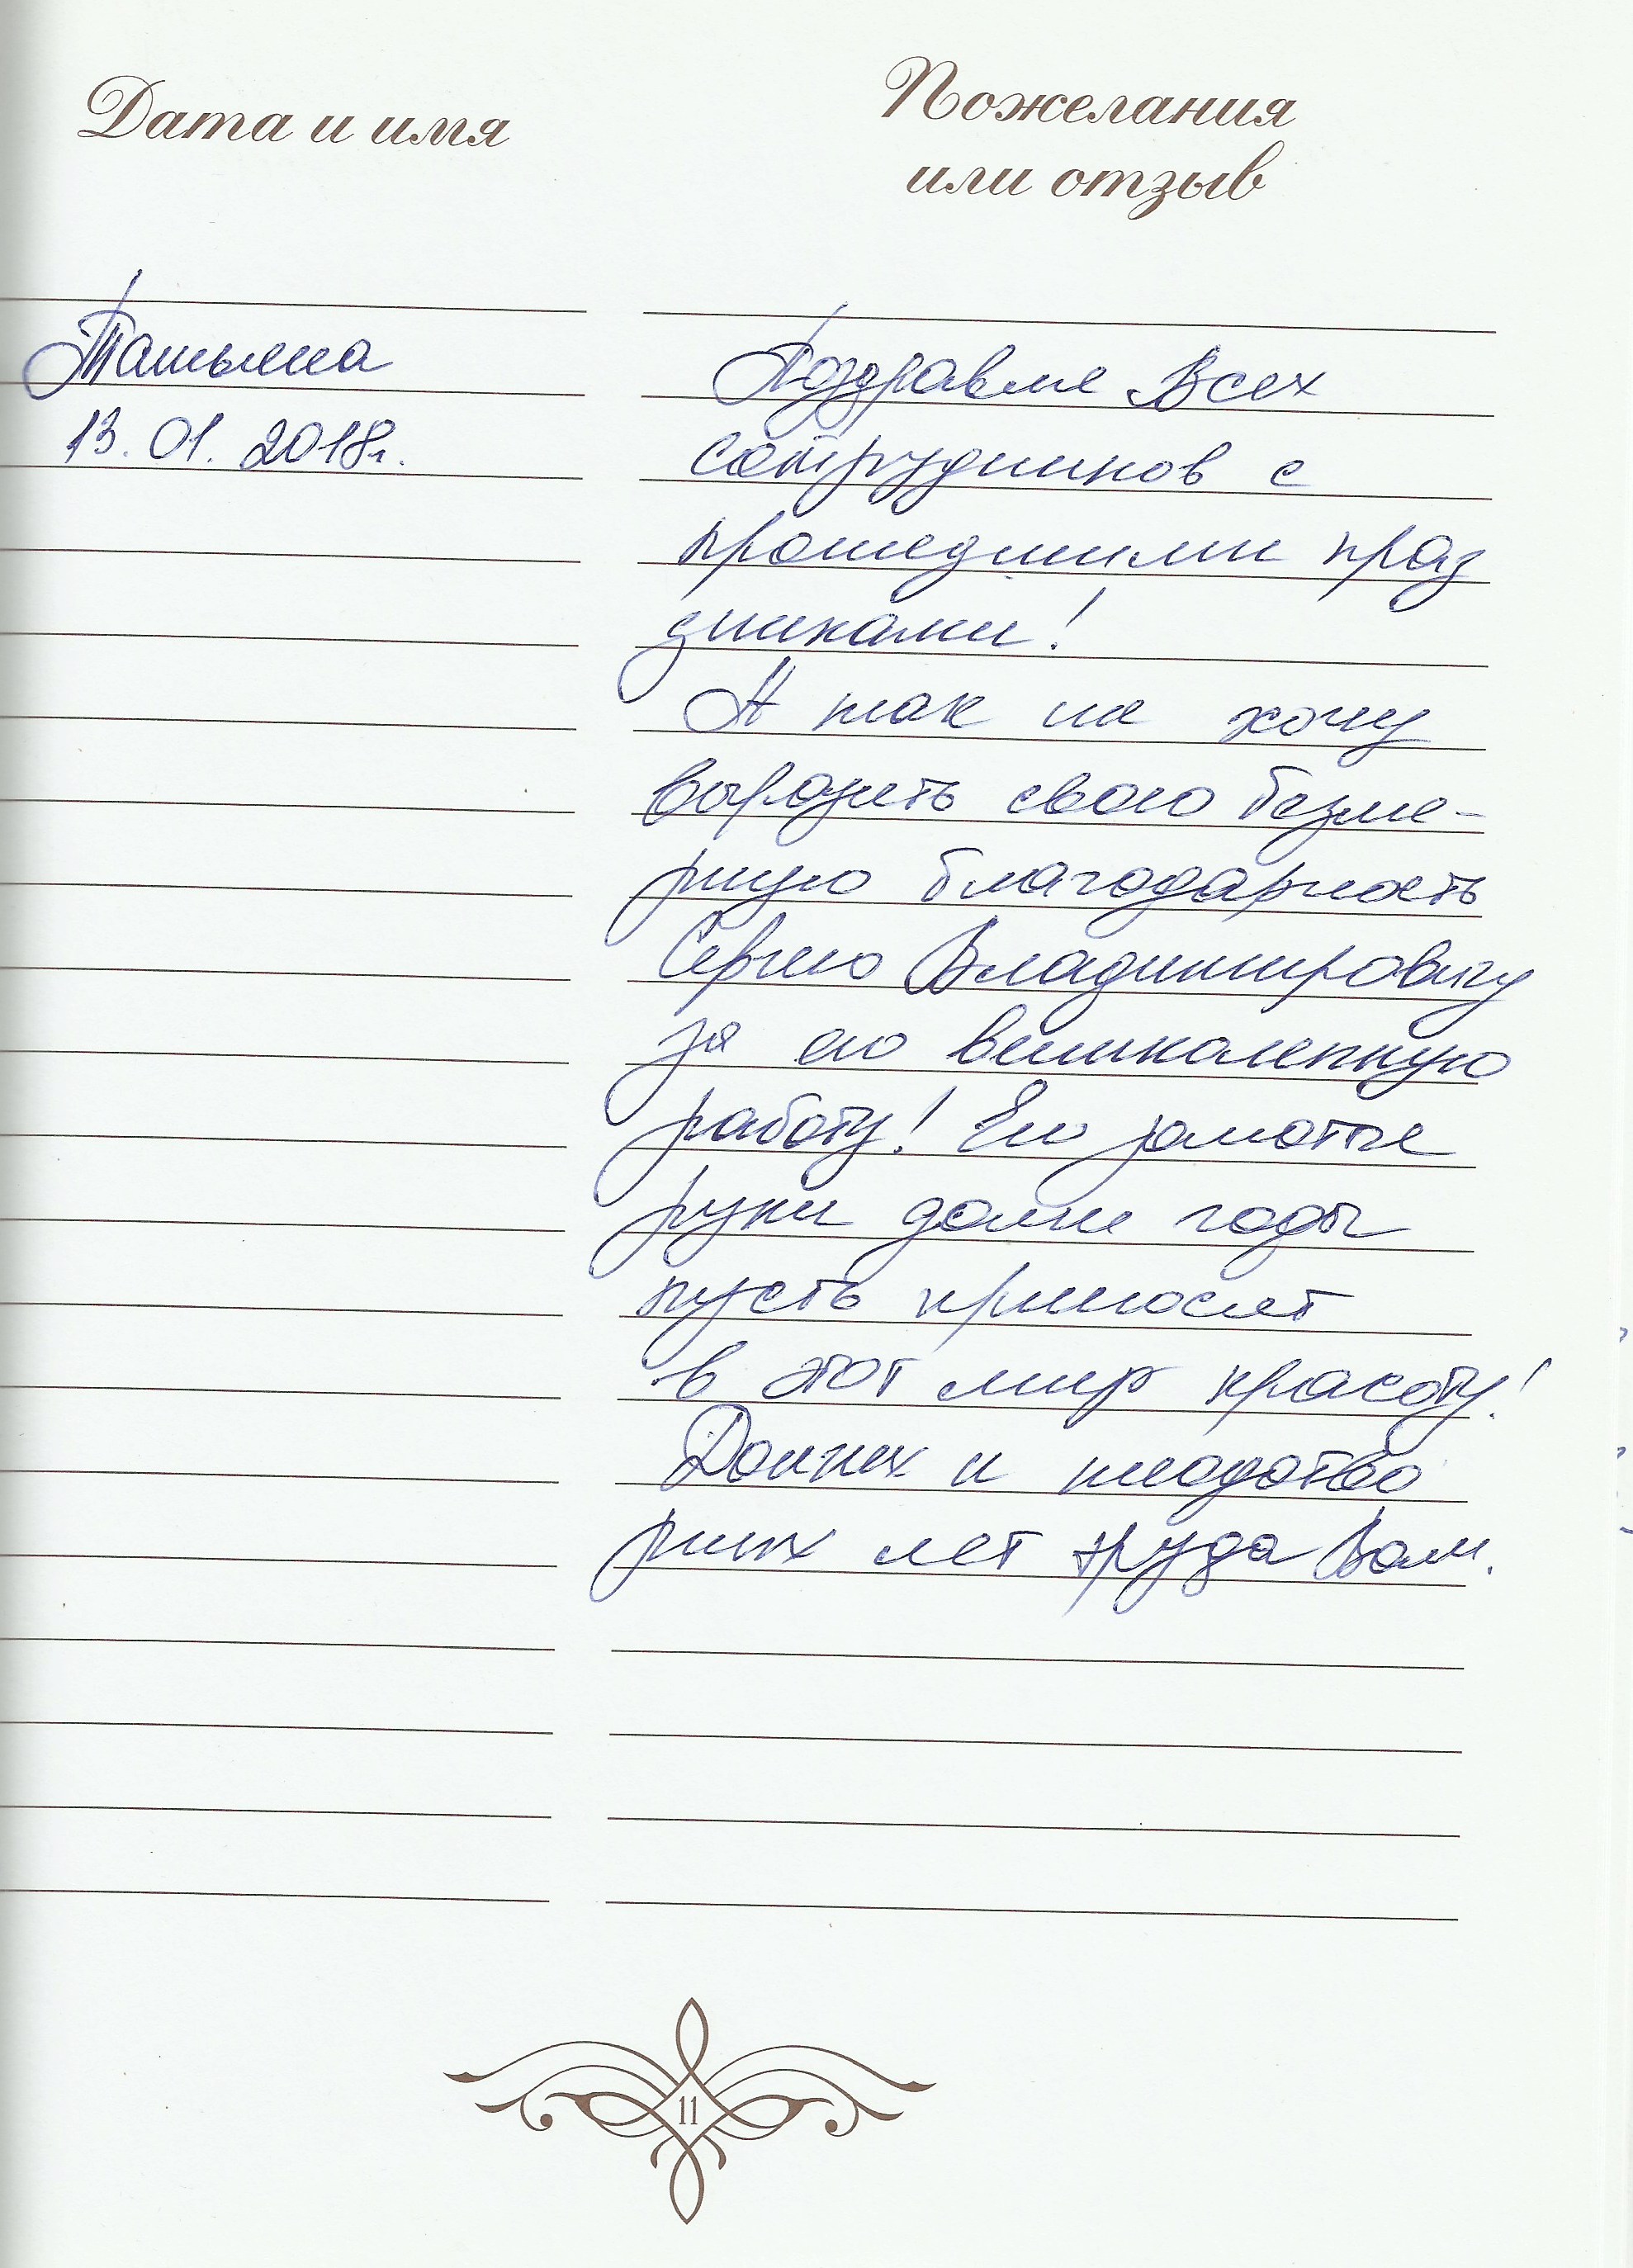 Дата и имя
Пожелания
или отзыв
Татьяна
13.01.2018г.
Поздравляю Всех
сотрудников с
прошедшими праз
дниками!
А так же хочу
выразить свою безме-
рную благодарность
Сергею Владимировичу
за его великолепную
работу! Его золотые
руки долгие годы
пусть приносят
в этот мир красоту!
Долгих и плодотво
рных лет труда Вам.
11